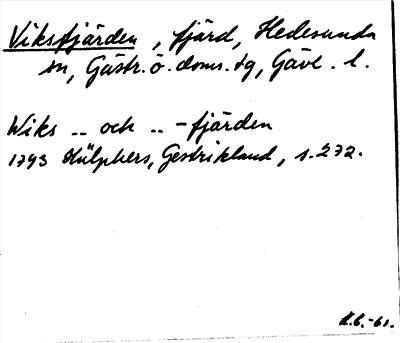 Viksfjärden, fjärd, Hedesunda
sn, Gästr. ö. doms. tg, Gävl. l.
Wiks .. och .. -fjärden
1793 Hülphers, Gestrikland, s. 272.
K.G. -61.